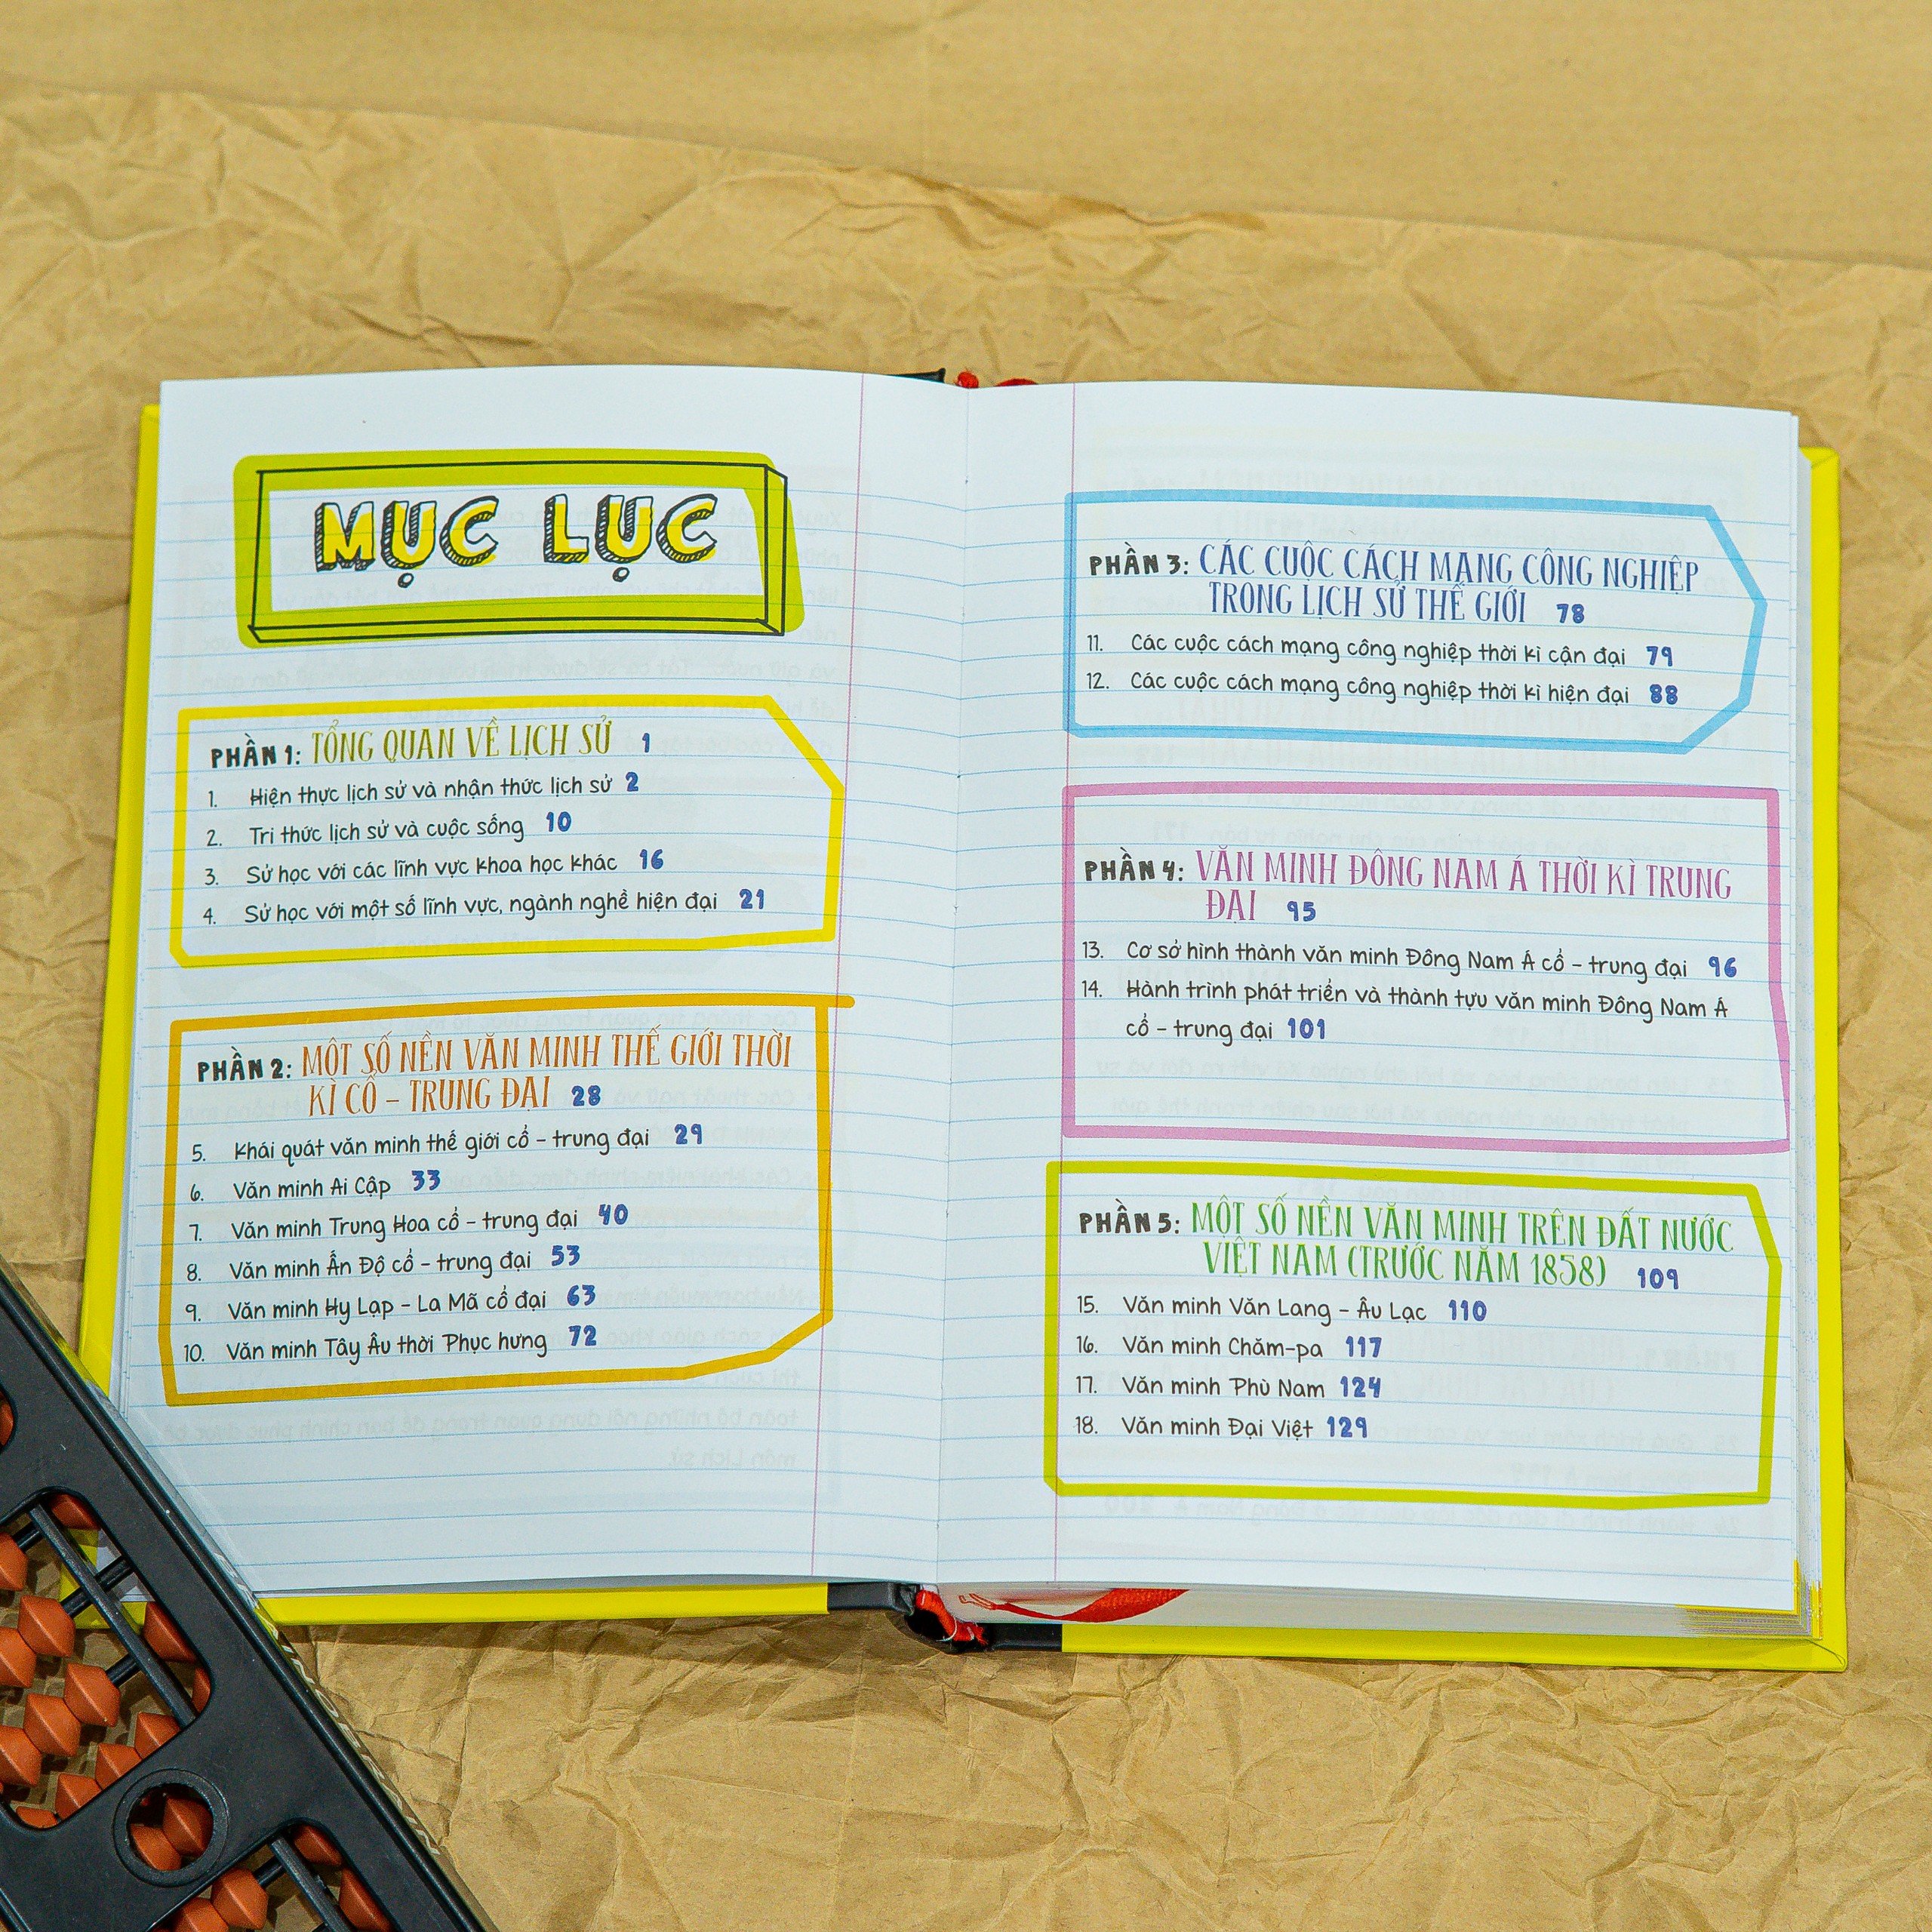 MỤC LỤC
PHẦN 1: TỔNG QUAN VỀ LỊCH SỬ 1
1. Hiện thực lịch sử và nhận thức lịch sử 2
2. Tri thức lịch sử và cuộc sống 10
3. Sử học với các lĩnh vực khoa học khác 16
4. Sử học với một số lĩnh vực, ngành nghề hiện đại 21
PHẦN 2: MỘT SỐ NỀN VĂN MINH THẾ GIỚI THỜI
KÌ CỔ – TRUNG ĐẠI 28
5. Khái quát văn minh thế giới cổ – trung đại 29
6. Văn minh Ai Cập 33
7. Văn minh Trung Hoa cổ – trung đại 40
8. Văn minh Ấn Độ cổ – trung đại 53
9. Văn minh Hy Lạp – La Mã cổ đại 63
10. Văn minh Tây Âu thời Phục hưng 72
PHẦN 3: CÁC CUỘC CÁCH MẠNG CÔNG NGHIỆP
TRONG LỊCH SỬ THẾ GIỚI 78
11. Các cuộc cách mạng công nghiệp thời kì cận đại 79
12. Các cuộc cách mạng công nghiệp thời kì hiện đại 88
PHẦN 4: VĂN MINH ĐÔNG NAM Á THỜI KÌ TRUNG
ĐẠI 95
13. Cơ sở hình thành văn minh Đông Nam Á cổ – trung đại 96
14. Hành trình phát triển và thành tựu văn minh Đông Nam Á
cổ – trung đại 101
PHẦN 5: MỘT SỐ NỀN VĂN MINH TRÊN ĐẤT NƯỚC
VIỆT NAM (TRƯỚC NĂM 1858) 109
15. Văn minh Văn Lang – Âu Lạc 110
16. Văn minh Chăm-pa 117
17. Văn minh Phù Nam 124
18. Văn minh Đại Việt 129